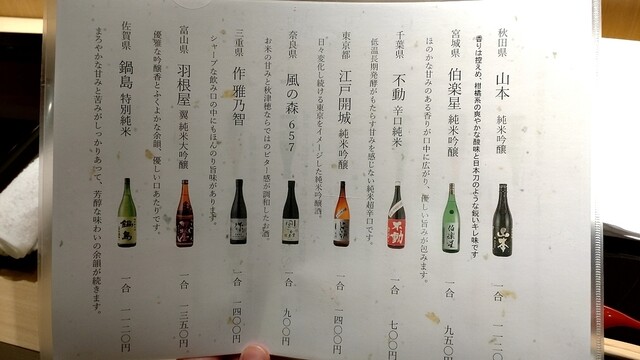 秋田県 山本 純米吟醸 一合
香りは控えめ、柑橘系の爽やかな酸味と日本刀のような鋭いキレ味です
宮城県 伯楽星 純米吟醸 一合 九五〇円
ほのかな甘みのある香りが口中に広がり、優しい旨みが包みます。
千葉県 不動 辛口純米 一合 七〇〇円
低温長期発酵がもたらす甘みを感じない純米超辛口です。
東京都 江戸開城 純米吟醸 一合 一四〇〇円
日々変化し続ける東京をイメージした純米吟醸酒。
奈良県 風の森 657 一合 九〇〇円
お米の甘みと秋津穂ならではのビター感が調和したお酒。
三重県 作 雅乃智 一合 一四〇〇円
シャープな飲み口の中にもほんのり旨味があります。
富山県 羽根屋 翼 純米大吟醸 一合 一三五〇円
優雅な吟醸香とふくよかな余韻、優しい口あたりです。
佐賀県 鍋島 特別純米 一合 一一二〇円
まろやかな甘みと苦みがしっかりあって、芳醇な味わいの余韻が続きます。
山本
伯楽星
不動
鍋島